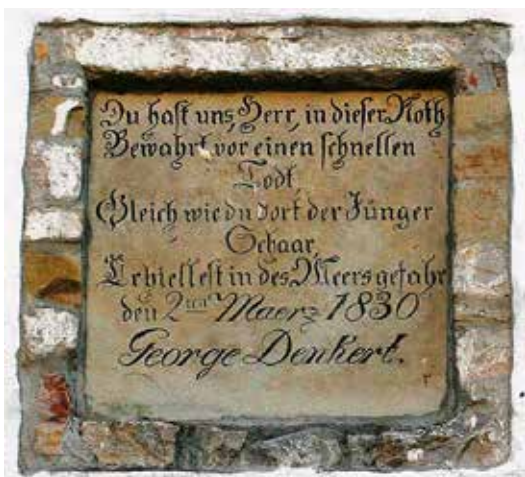 Du hast uns, Herr, in dieser Noth
Bewahrt vor einen schnellen
Todt,
Gleich wie du dort der Jünger
Schaar,
Erhieltest in des Meers gefahr
den 2ten Maerz 1830
George Denkert.